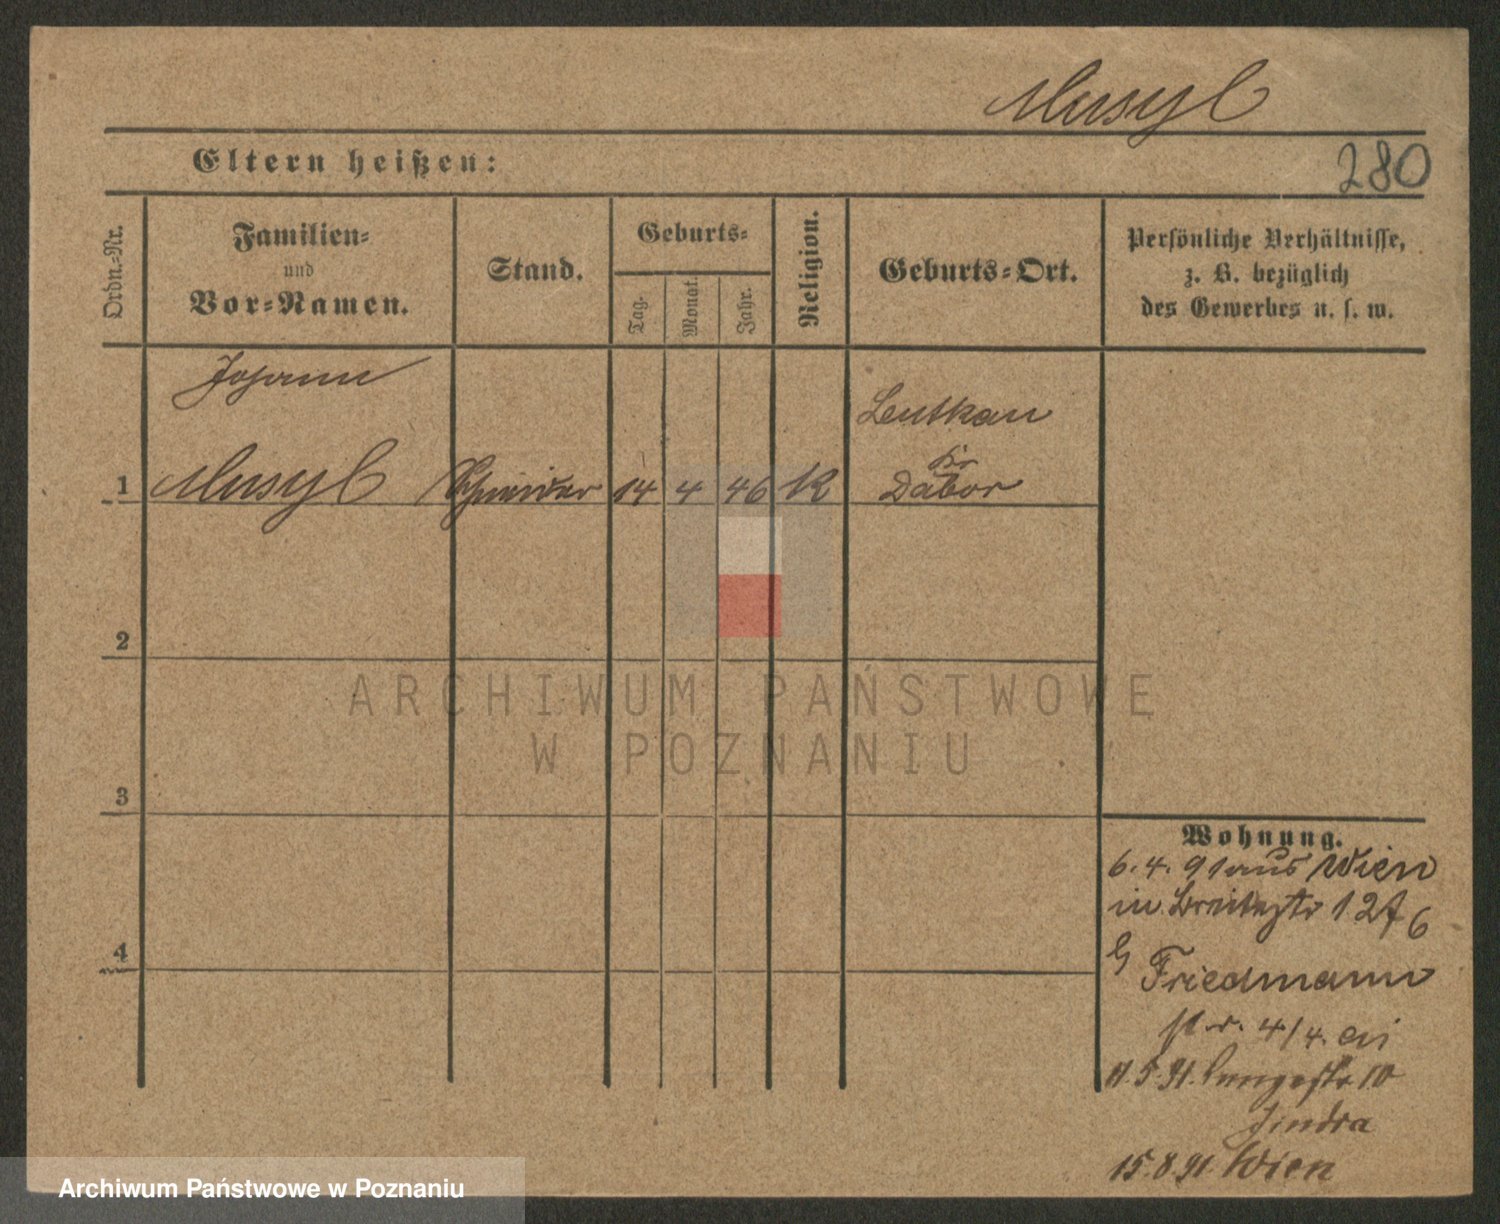 Musyl
Eltern heißen:
280
Ordn.-Nr.
Familien-
und
Vor-Namen.
Stand.
Geburts-
Tag.
Monat.
Jahr.
Religion.
Geburts-Ort.
Persönliche Verhältnisse,
z. B. bezüglich
des Gewerbes u. s. w.
Johann
Leutkau
Kr
1 Musyl Schneider 14 4 46 K Dabor
2
3
4
ARCHIWUM PAŃSTWOWE
W POZNANIU
Wohnung.
6.4.91 aus Wien
in Breitestr 12
Friedmann
4/4.
11.5.91. Langestr 10
Jindra
15.8.91 Wien
Archiwum Państwowe w Poznaniu